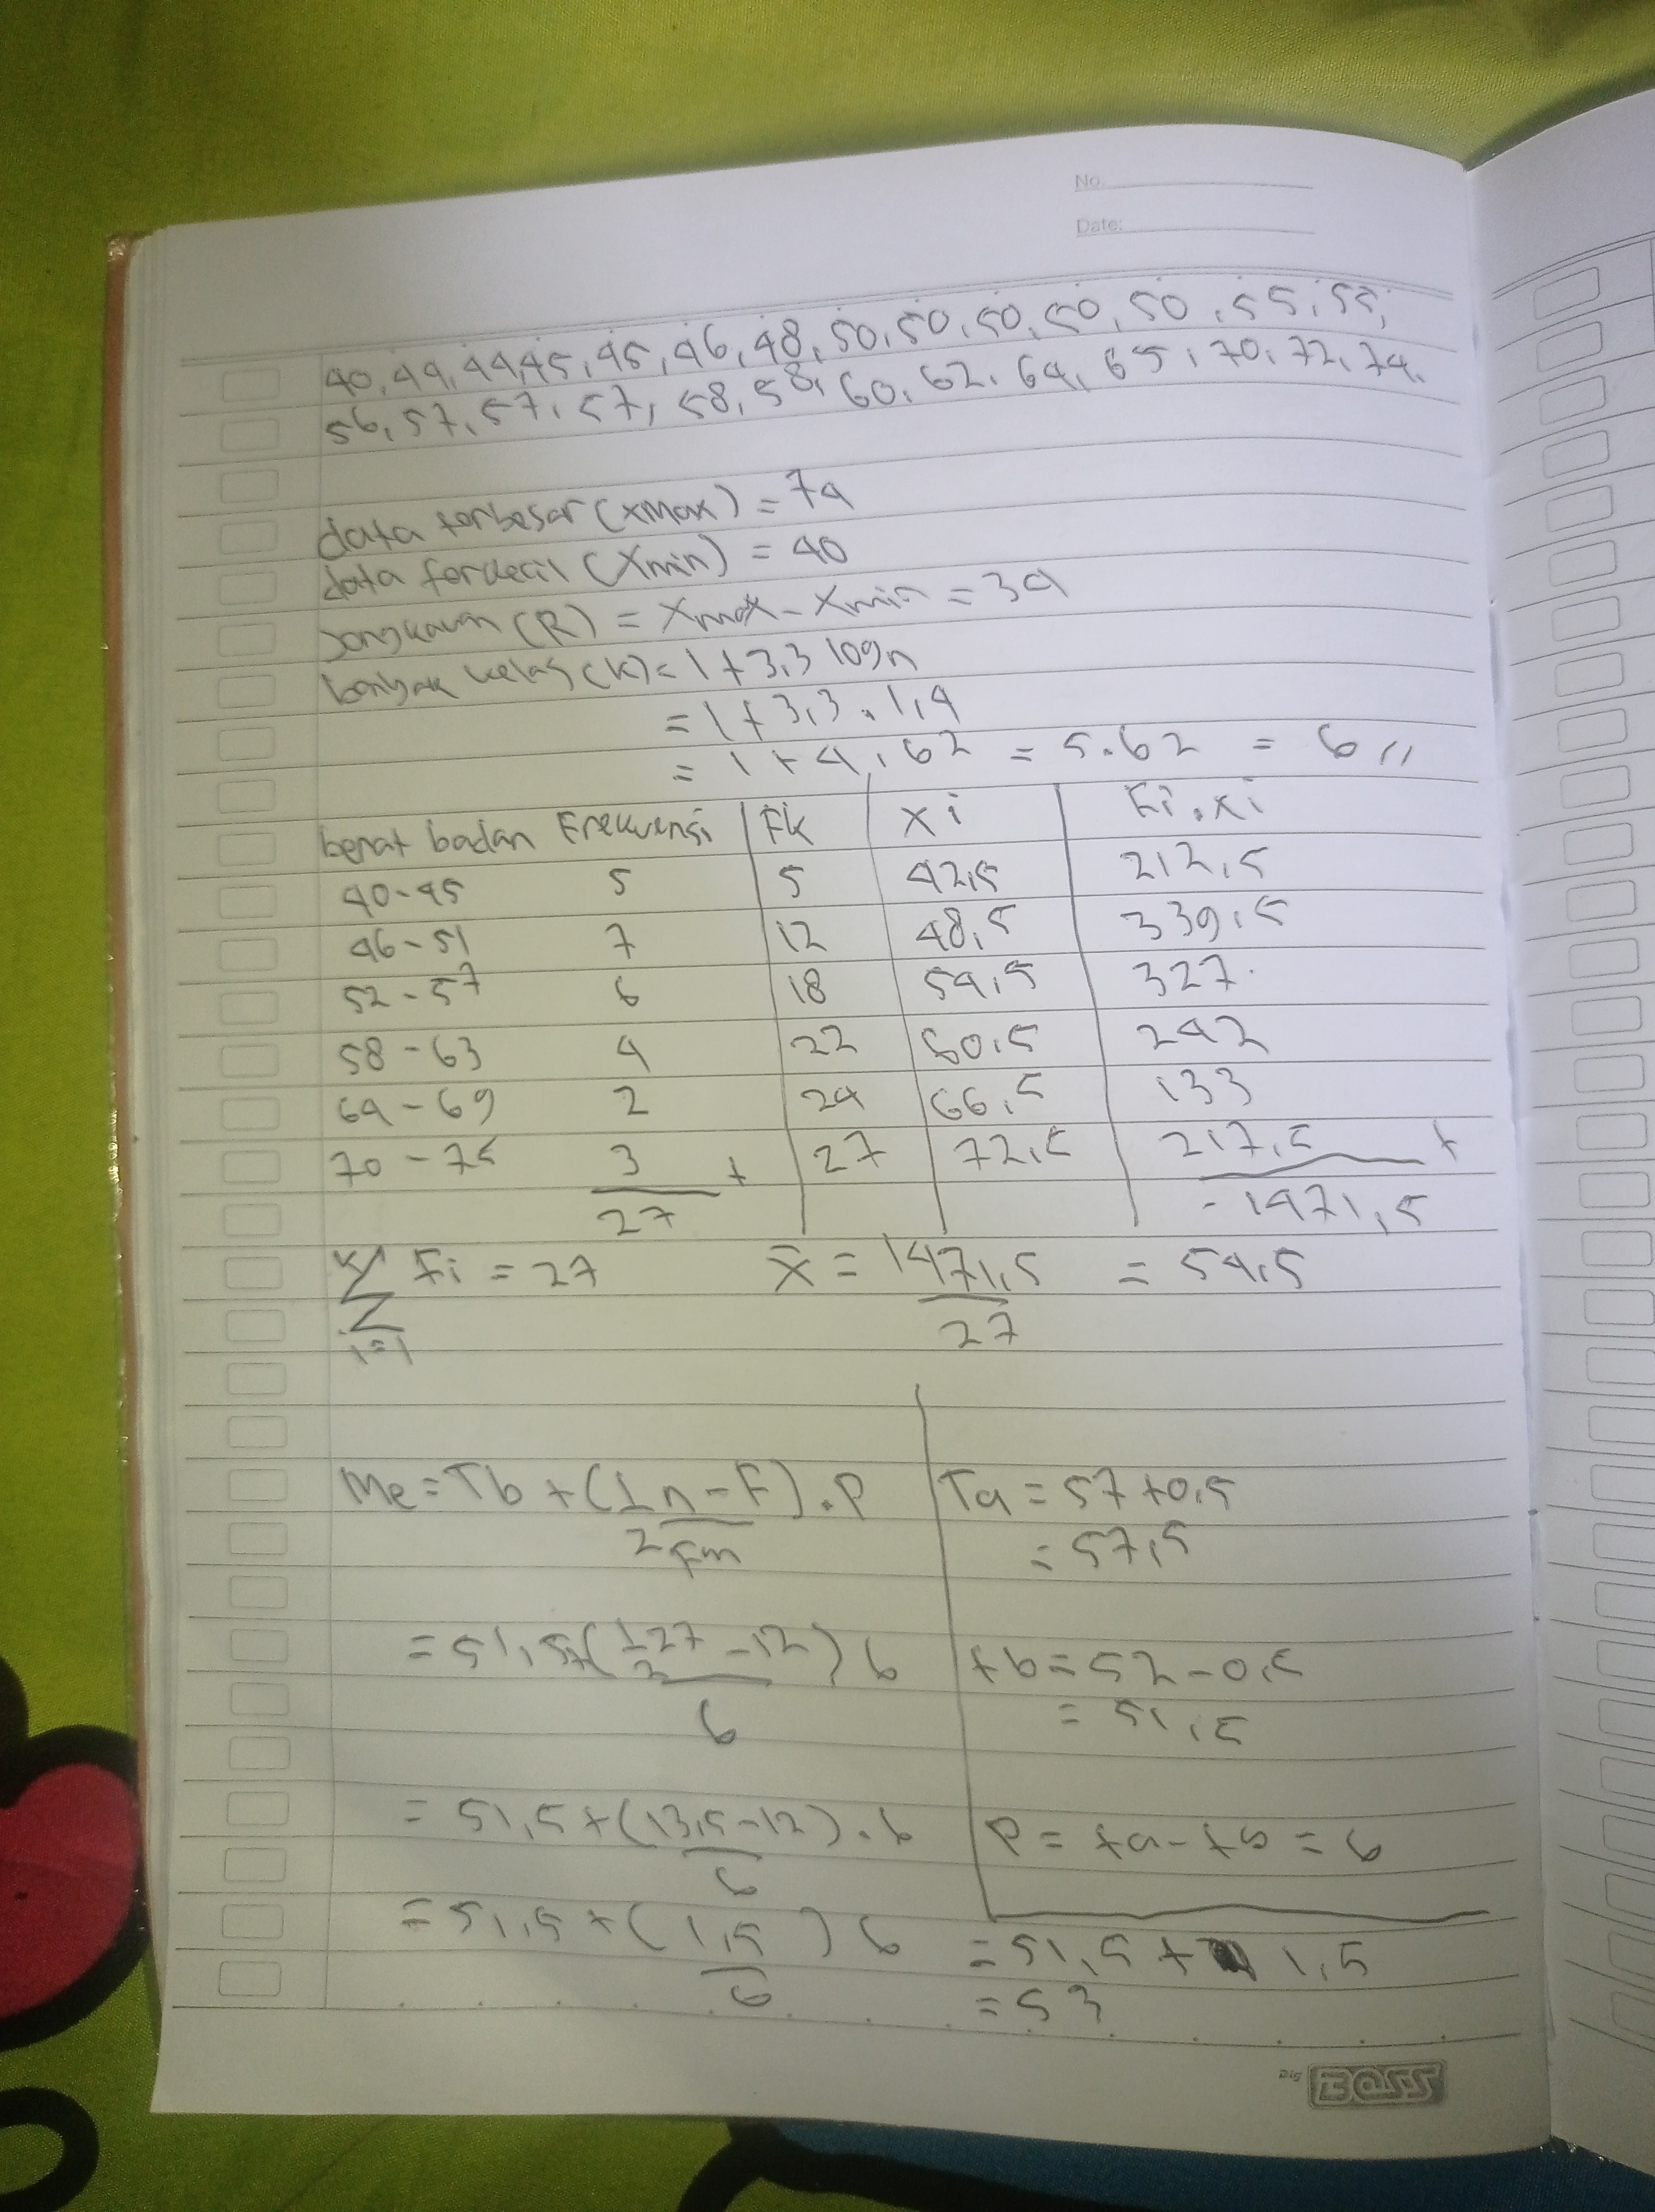 No.
Date:
40, 44, 44, 45, 45, 46, 48, 50, 50, 50, 50, 50, 55, 55,
56, 57, 57, 57, 58, 58, 60, 62, 64, 65, 70, 72, 74.
data terbesar (xmax) = 74
data terkecil (Xmin) = 40
Jangkauan (R) = Xmax - Xmin = 34
banyak kelas (k) = 1 + 3,3 log n
= 1 + 3,3 . 1,4
= 1 + 4,62 = 5.62 = 6 //
berat badan Frekuensi Fk xi Fi.xi
40-45 5 5 42,5 212,5
46-51 7 12 48,5 339,5
52-57 6 18 54,5 327
58-63 4 22 60,5 242
64-69 2 24 66,5 133
70-75 3 + 27 72,5 217,5 +
27 1471,5
k Σ i=1 Fi = 27 x̄ = 1471,5 / 27 = 54,5
Me = Tb + (1/2 n - F / Fm) . P Ta = 57 + 0,5
= 57,5
= 51,5 + (1/2 27 - 12 / 6) 6 tb = 52 - 0,5
= 51,5
= 51,5 + (13,5 - 12 / 6) . 6 P = ta - tb = 6
= 51,5 + (1,5 / 6) 6 = 51,5 + 1,5
= 53
Big BOSS